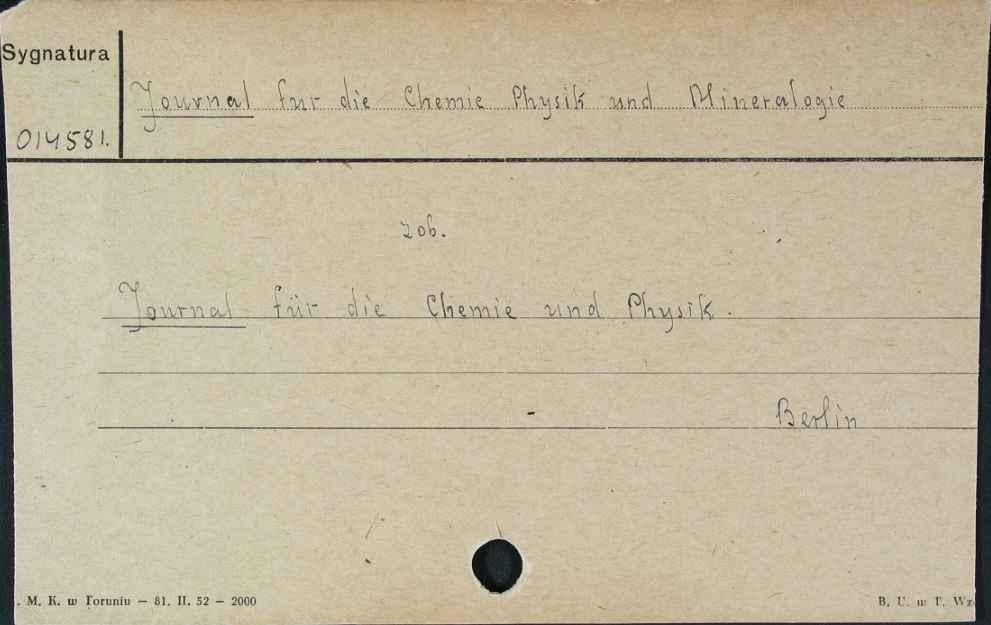 Sygnatura
Journal fur die Chemie Physik und Mineralogie
014581.
zob.
Journal für die Chemie und Physik.
Berlin
. M. K. w Toruniu — 81. II. 52 — 2000
B. U. w T. Wz